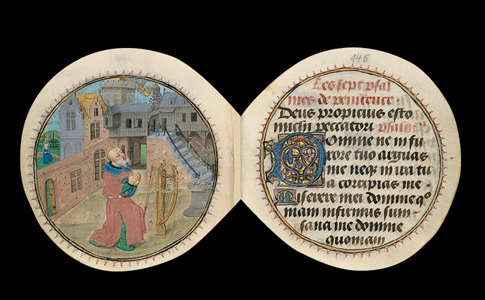 146
Les sept psal
mes de penitence.
Deus propicius esto
michi peccatori psalmus
Domine ne in fu
rore tuo arguas
me neq; in ira tu
a corripias me.
Miserere mei domine qo
niam infirmus sum
sana me domine
quoniam